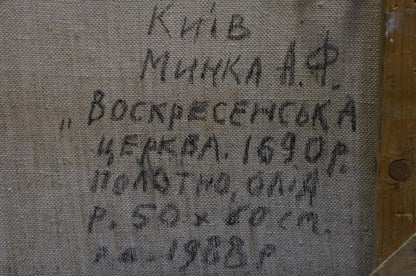 Київ
Минка А.Ф.
„Воскресенська
церква. 1690р.
полотно, олія
р. 50 х 60 см.
р.в. 1988 р